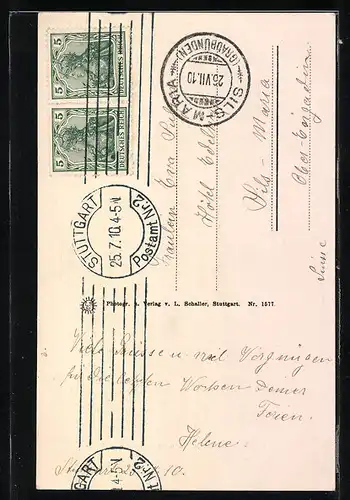 5 5
DEUTSCHES REICH
5 5
DEUTSCHES REICH
SILS-MARIA
(GRAUBÜNDEN)
26.VII.10
STUTTGART
25.7.10.4-5N.
Postamt Nr.2
Fräulein Eva
Hôtel Edelweiss
Sils-Maria
Ober-Engadin
Suisse
Photogr. u. Verlag v. L. Schaller, Stuttgart. Nr. 1577.
Viele Grüsse u. viel Vergnügen
für die letzten Wochen Deiner
Ferien.
Helene.
Stuttgart 25. 10.
STUTTGART
10.4-5N.
Nr.2